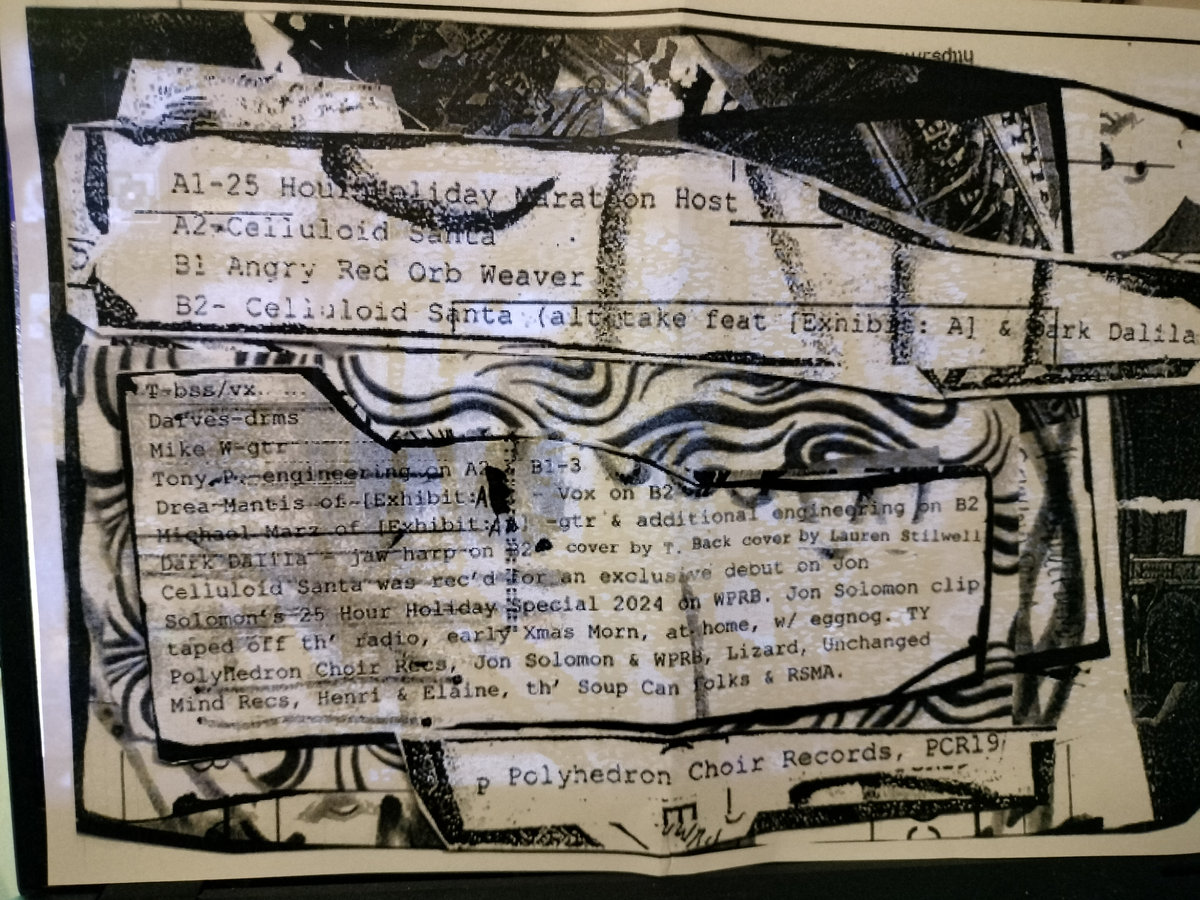 A1-25 Hour Holiday Marathon Host
A2-Celluloid Santa
B1 Angry Red Orb Weaver
B2- Celluloid Santa (alt take feat [Exhibit: A] & Dark Dalila
T-bss/vx
Dafves-drms
Mike W-gtr
Tony P.-engineering on A2 B1-3
Drea Mantis of [Exhibit:A - Vox on B2
Michael Marz of [Exhibit:A] -gtr & additional engineering on B2
Dark Dalila - jaw harp on B2 cover by T. Back cover by Lauren Stilwell
Celluloid Santa was rec'd for an exclusive debut on Jon
Solomon's 25 Hour Holiday Special 2024 on WPRB. Jon Solomon clip
taped off th' radio, early Xmas Morn, at home, w/ eggnog. TY
PolyHedron Choir Recs, Jon Solomon & WPRB, Lizard, Unchanged
Mind Recs, Henri & Elaine, th' Soup Can folks & RSMA.
P Polyhedron Choir Records, PCR19